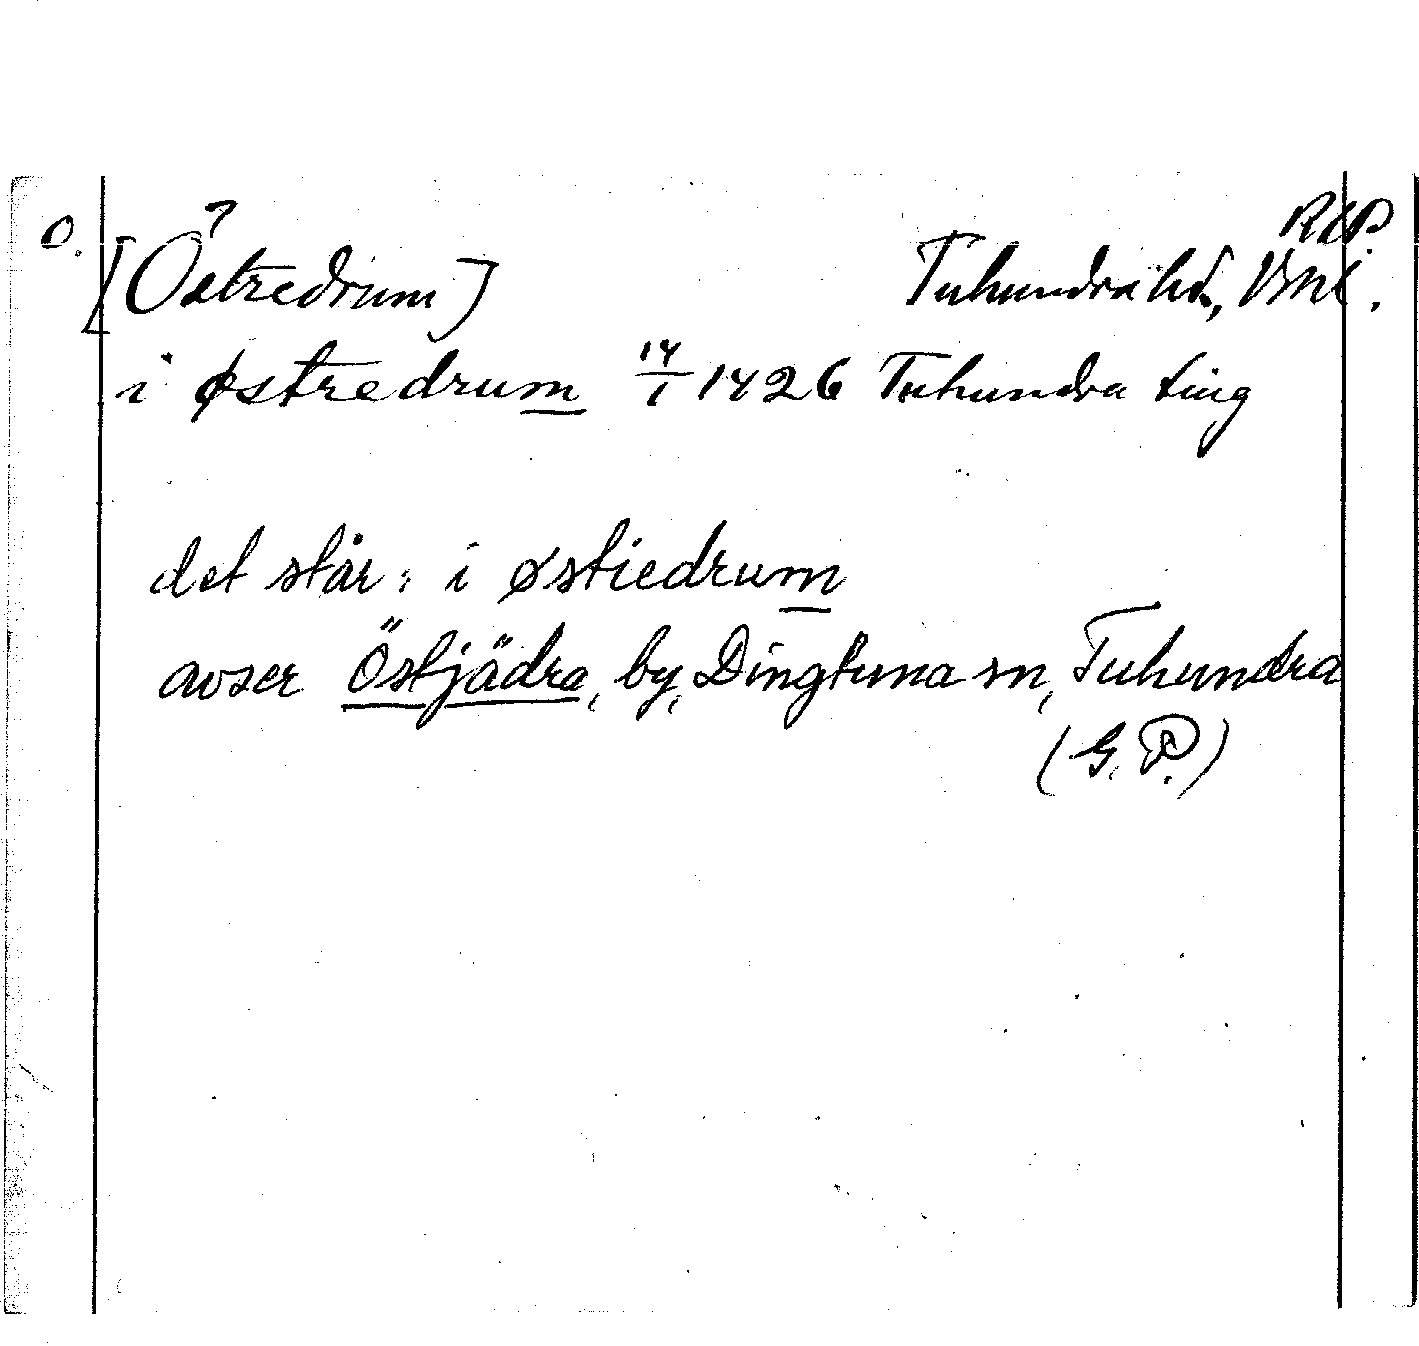 O. [Östredrum] ? Tuhundra hd., Vml.
i østredrum 14/1 1426 Tuhundra ting
det står: i østiedrum
avser Östjädra, by, Dingtuna sn, Tuhundra
(G. P.)